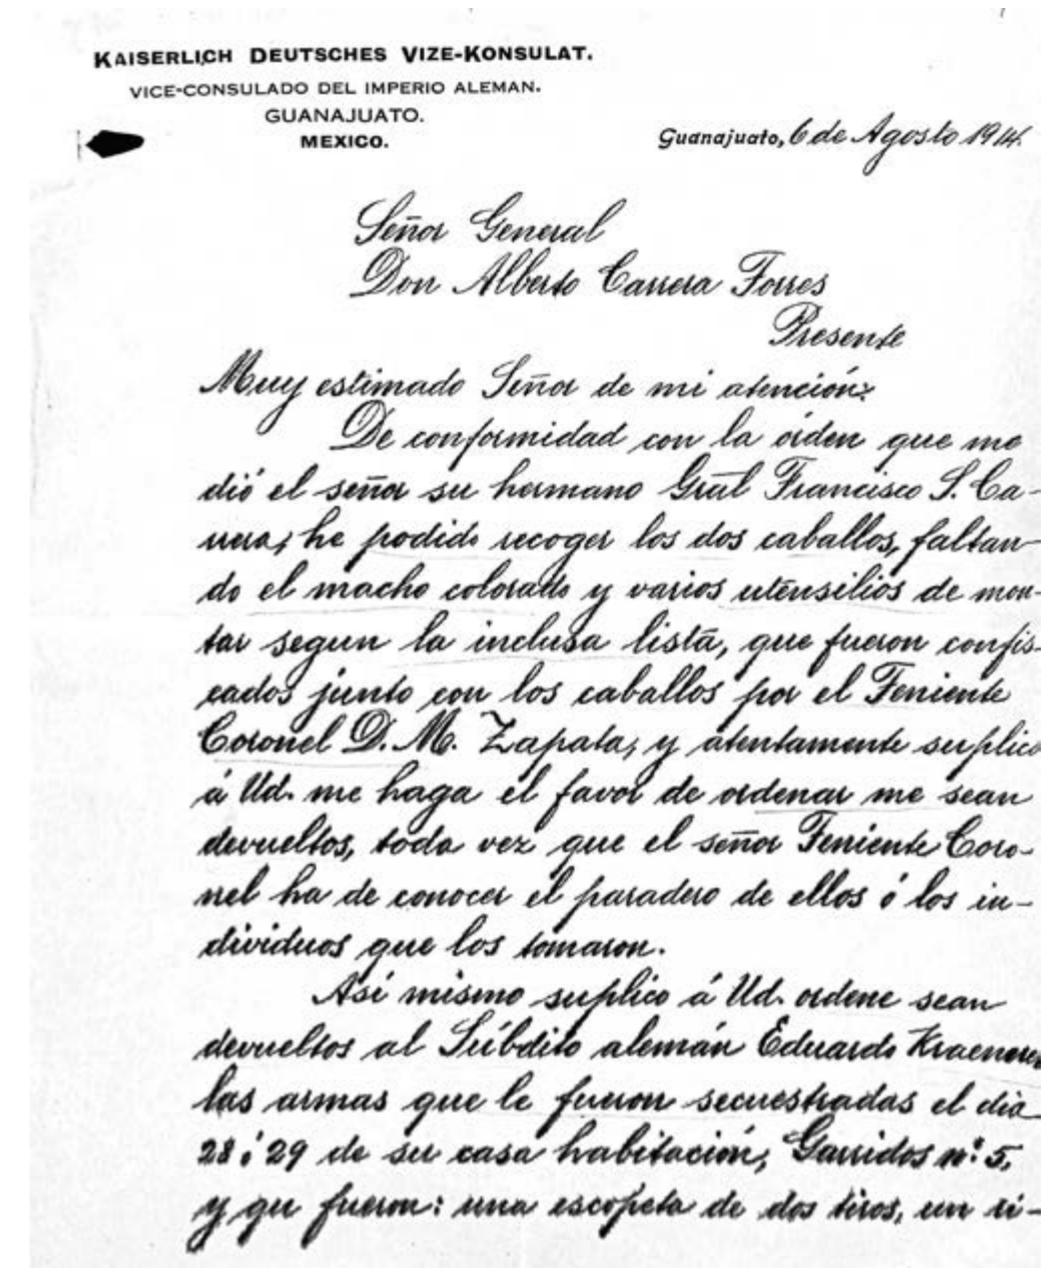 KAISERLICH DEUTSCHES VIZE-KONSULAT.
VICE-CONSULADO DEL IMPERIO ALEMAN.
GUANAJUATO.
MEXICO.
Guanajuato, 6 de Agosto 1914.
Señor General
Don Alberto Carrera Torres
Presente
Muy estimado Señor de mi atención:
De conformidad con la órden que me
dió el señor su hermano Gral Francisco S. Ca-
rrera, he podido recoger los dos caballos, faltan-
do el macho colorado y varios utensilios de mon-
tar segun la inclusa lista, que fueron confis-
cados junto con los caballos por el Teniente
Coronel D. M. Zapata, y atentamente suplico
á Ud. me haga el favor de ordenar me sean
devueltos, toda vez que el señor Teniente Coro-
nel ha de conocer el paradero de ellos ó los in-
dividuos que los tomaron.
Así mismo suplico á Ud. ordene sean
devueltos al Súbdito alemán Eduardo
las armas que le fueron secuestradas el dia
28 ó 29 de su casa habitación, Garridos nº 5,
y qu fueron: una escopeta de dos tiros, un ri-